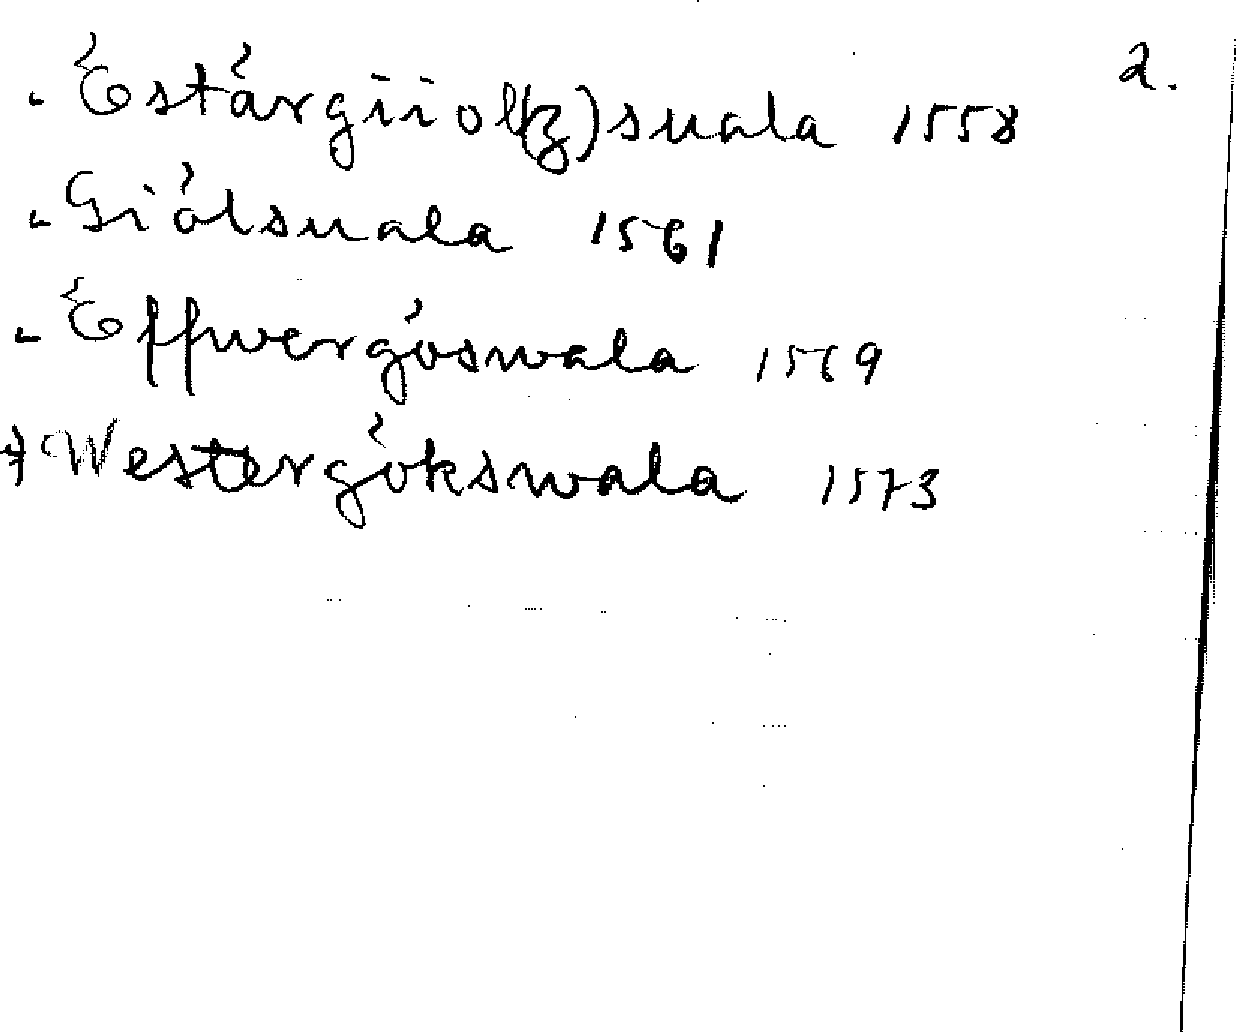 2.
Östårgiiol(z)suala 1558
Giólsuala 1561
Öffwergöswala 1569
Westergökswala 1573